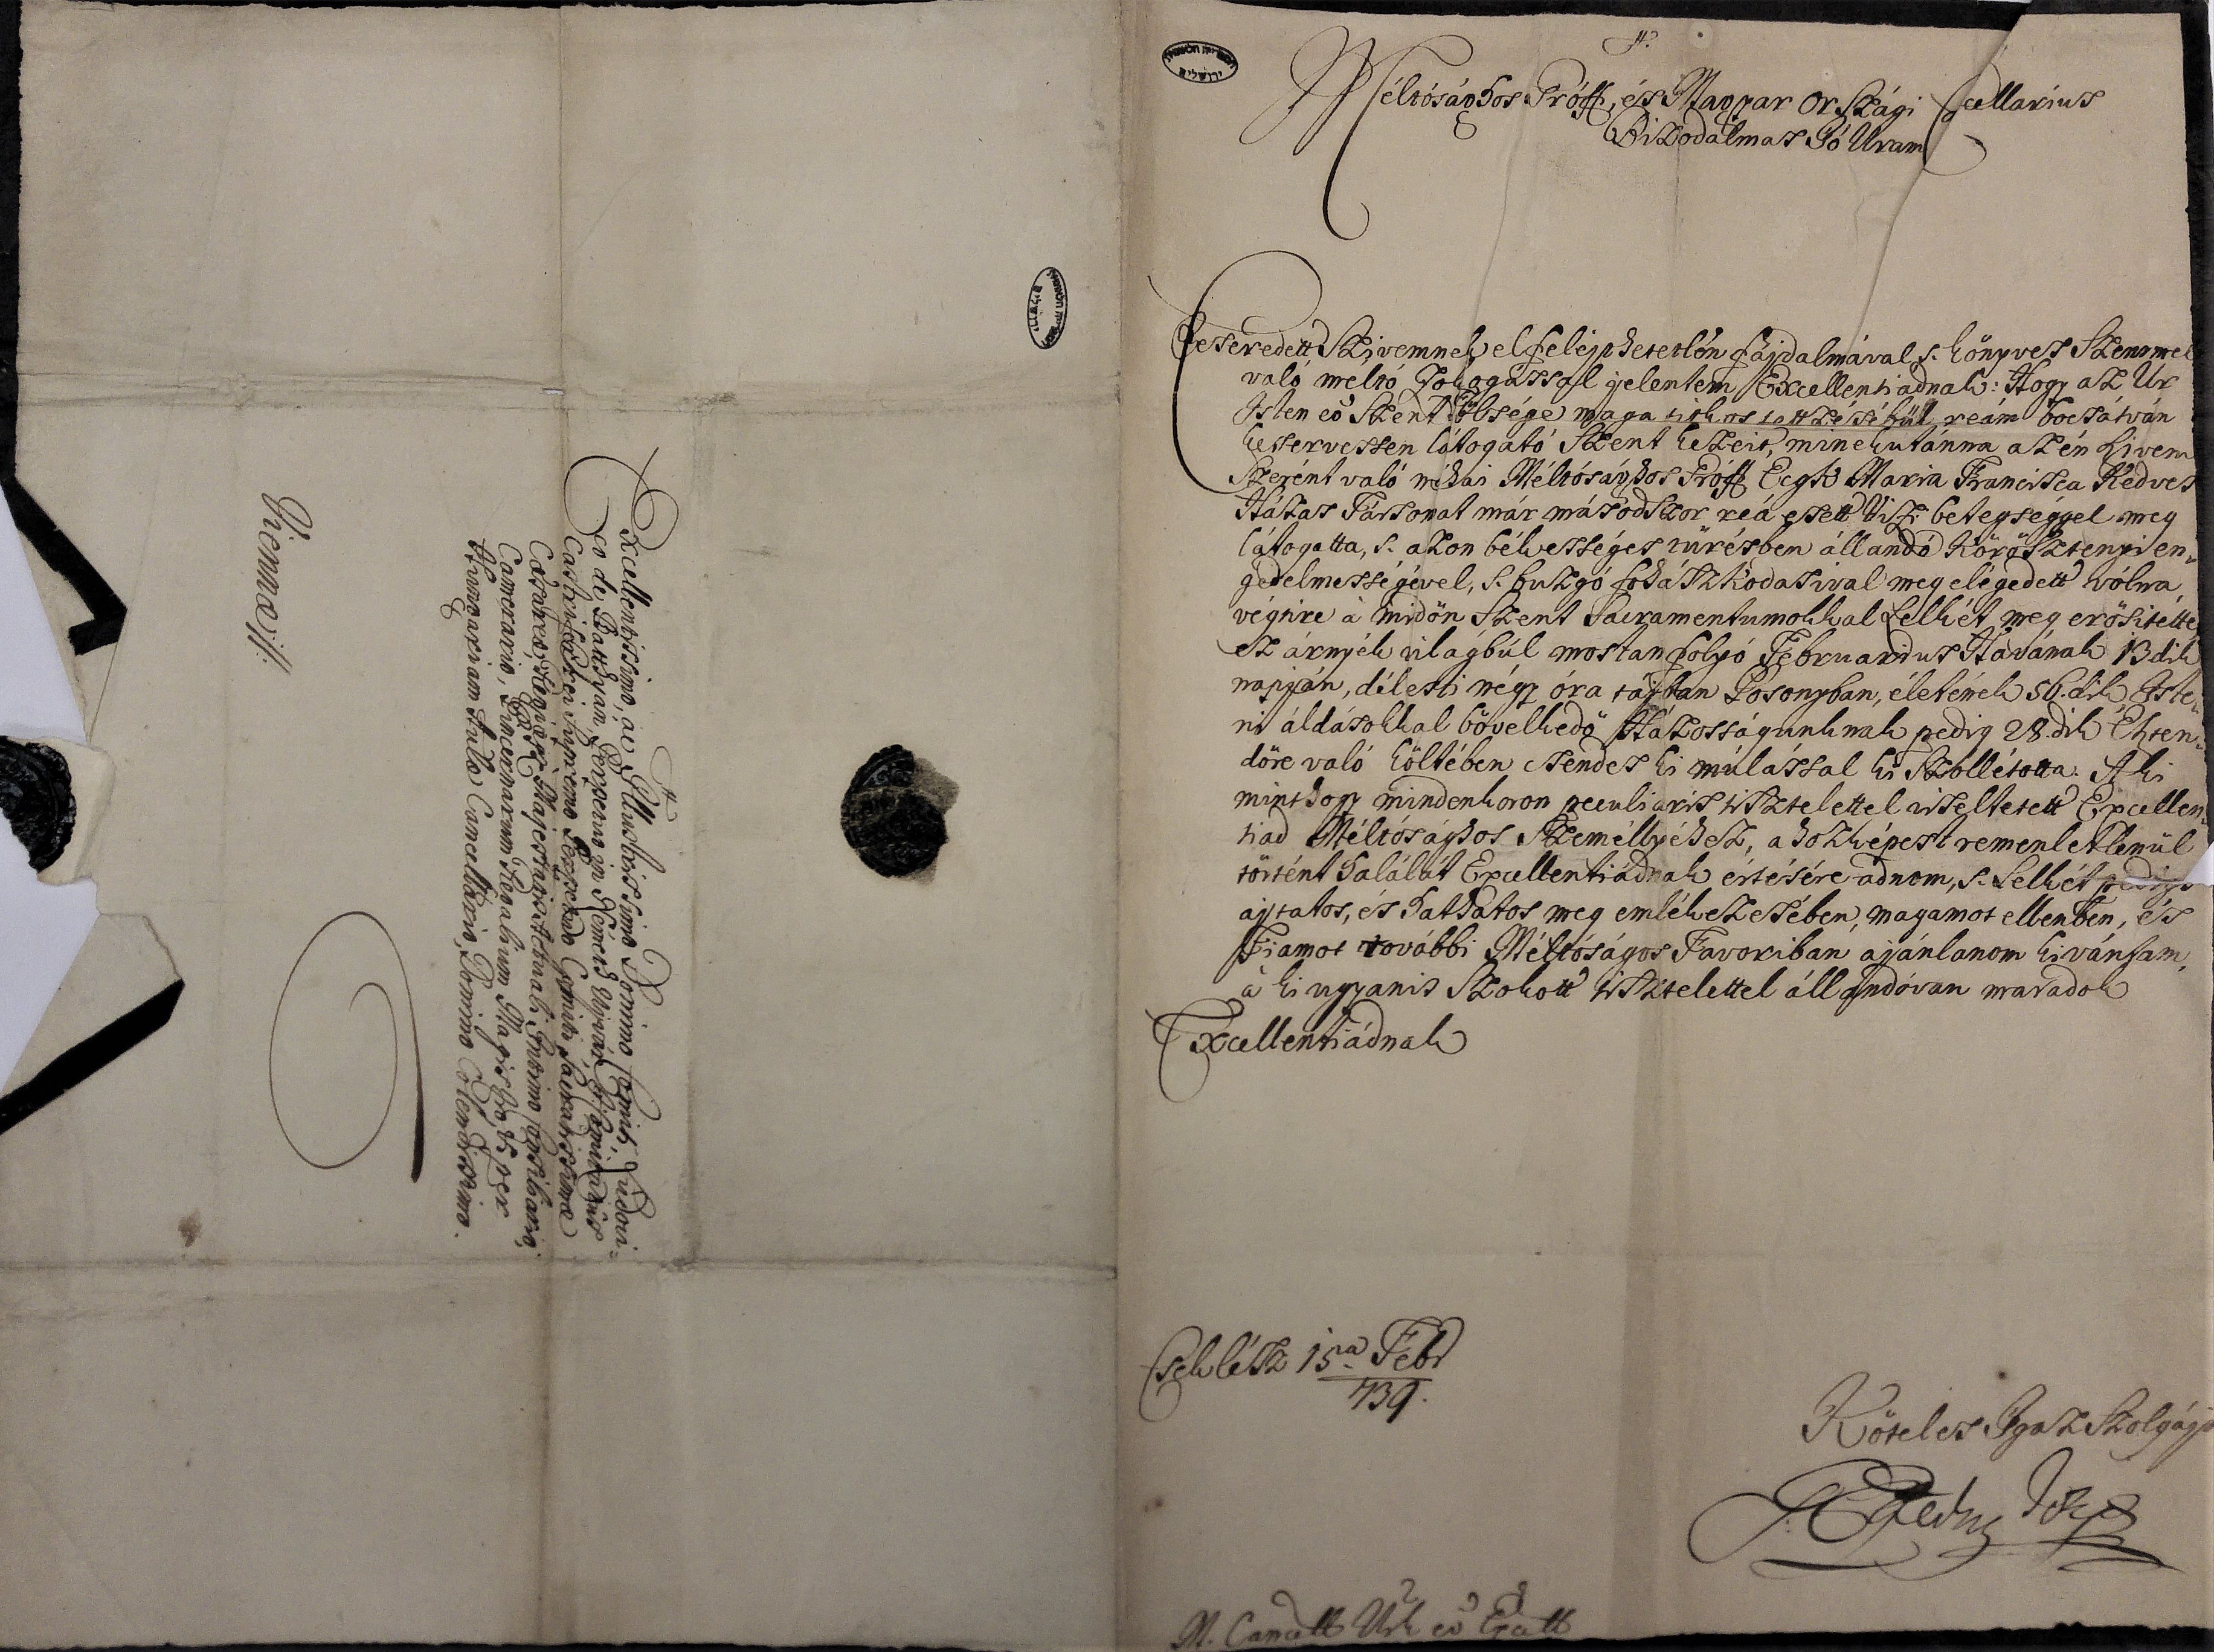 Méltósághos Gróff, és Magyar Országi Cancellarius
Bizodalmas Jó Uram
Keseredett Szívemnek elfelejthetetlen fájdalmával s. könyves Szemmel
való meltó Zokogással jelentem Excellentiádnak: Hogy az Ur
Isten eő Szent Fölsége maga titkos tettzésébül reám bocsátván
keservessen látogató Szent kezeit, minekutánna az én Szivem
Szerént való néhai Méltósághos Gróff Maria Francisca Kedves
Házas Társomat már másodszor reá esett Vizi betegséggel meg
látogatta, s. azon békességes türésben állandó Körösztenyi en-
gedelmességével, s. buzgó fohászkodasival meg elégedett vólna,
végtire à midön Szent Sacramentumokkal Lelkét meg erősitette
ez árnyék világbúl mostan folyó Februarius Havának 13dik
napján, délesti négy óra tájban Posonyban, életének 56.dik, Iste-
ni áldásokkal bövelkedö Házosságunknak pedig 28.dik Eszten-
döre való költében csendes ki múlással ki Szóllétotta. A ki
minthogy mindenkoron peculiaris tisztelettel viseltetett Excellen-
tiád Méltósághos Személlyéhez, a hozképest remenletlenül
történt halálát Excellentiádnak értésére adnom, s. Lelkét pedig
ájtatos, és hathatos meg emlékezesében, magamot ellenben, és
Fiamot további Méltóságos Favoriban ajánlanom kivánsam,
à ki ugyanis Szokott tisztelettel állandóvan maradok
Excellentiádnak
Cseklész 15ta Febr
739.
Köteles Igaz Szolgája
M. Cancell Urk eő Excell
Excellentissimo, ac Illustrissimo Domino Comiti, Ludovi-
co de Batthyan, Perpetuo in Németh Ujvár,
Castri supremo Comiti, Sacratissimæ
Cæsareo, Regiæ Majestatis Actuali Intimo Consiliario,
Camerario, Magistro, & per
Hungariam Aulæ Cancellario, Domino Colendissimo.
Viennæ